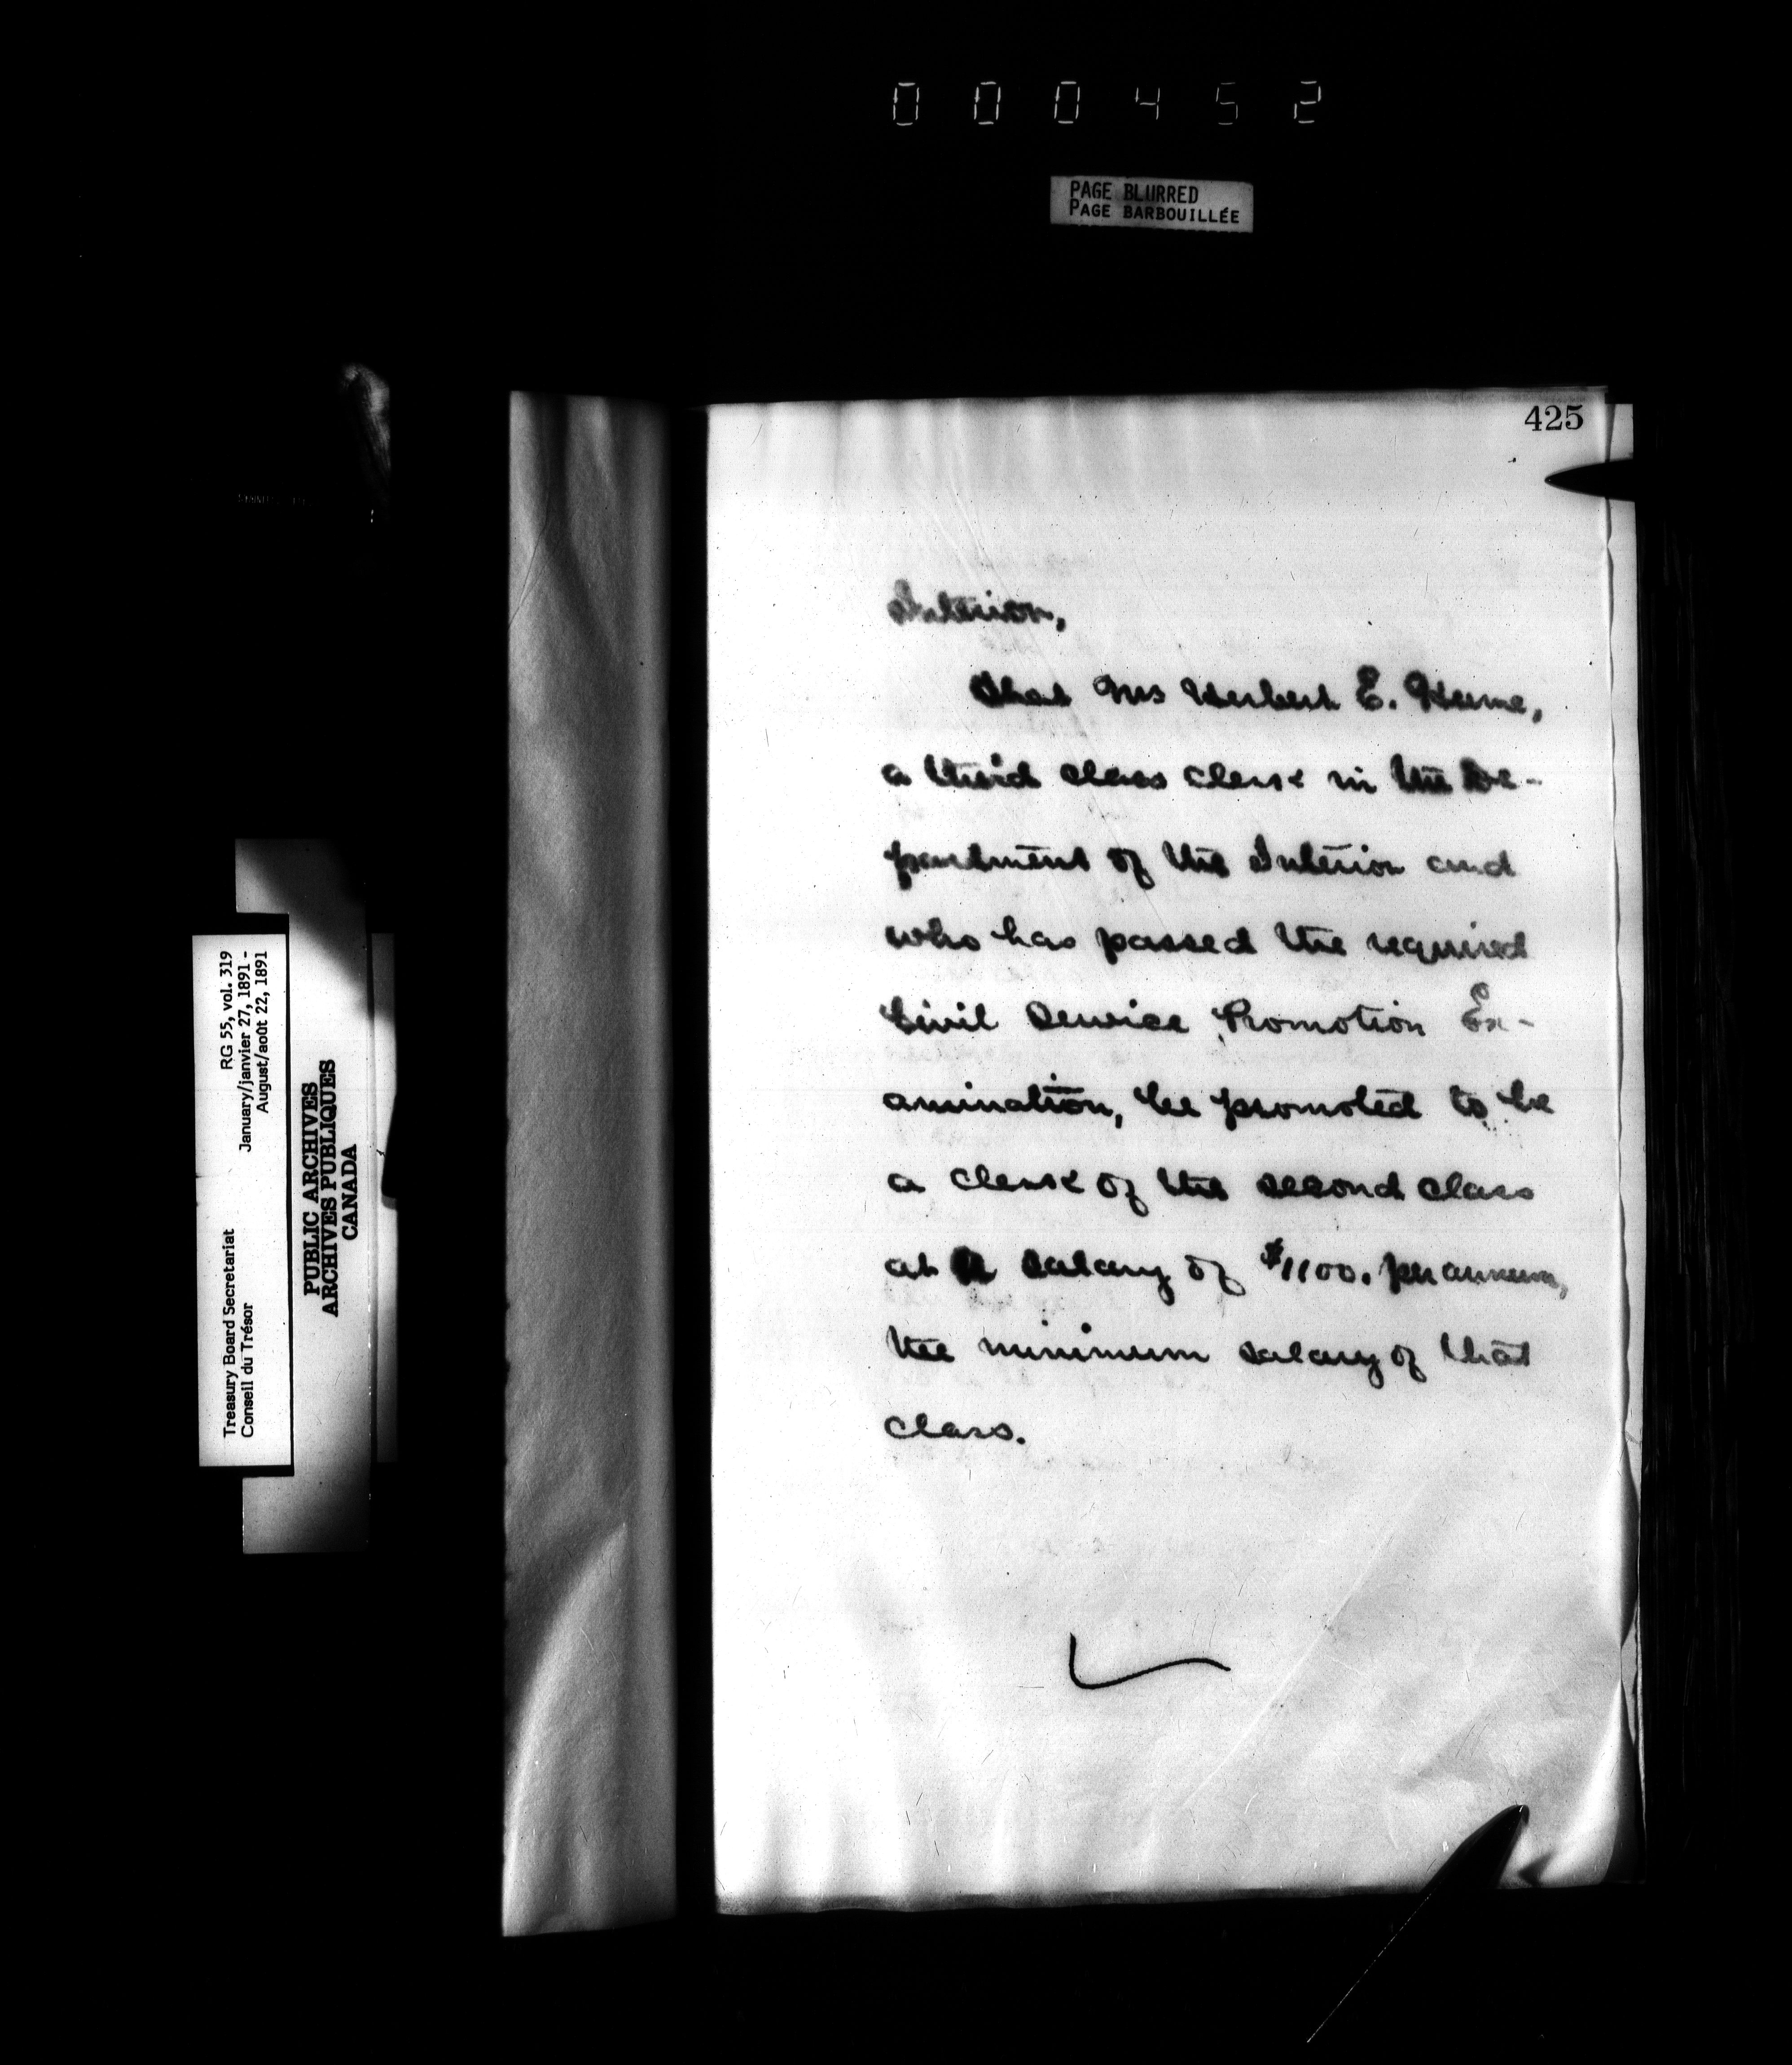 000452
PAGE BLURRED
PAGE BARBOUILLÉE
425
Interior,
That Mr Herbert E. Hume,
a third class clerk in the De-
partment of the Interior and
who has passed the required
Civil Service Promotion Ex-
amination, be promoted to be
a clerk of the second class
at a salary of $1100. per annum,
the minimum salary of that
class.
Treasury Board Secretariat RG 55, vol. 319
Conseil du Trésor January/janvier 27, 1891 -
August/août 22, 1891
PUBLIC ARCHIVES
ARCHIVES PUBLIQUES
CANADA